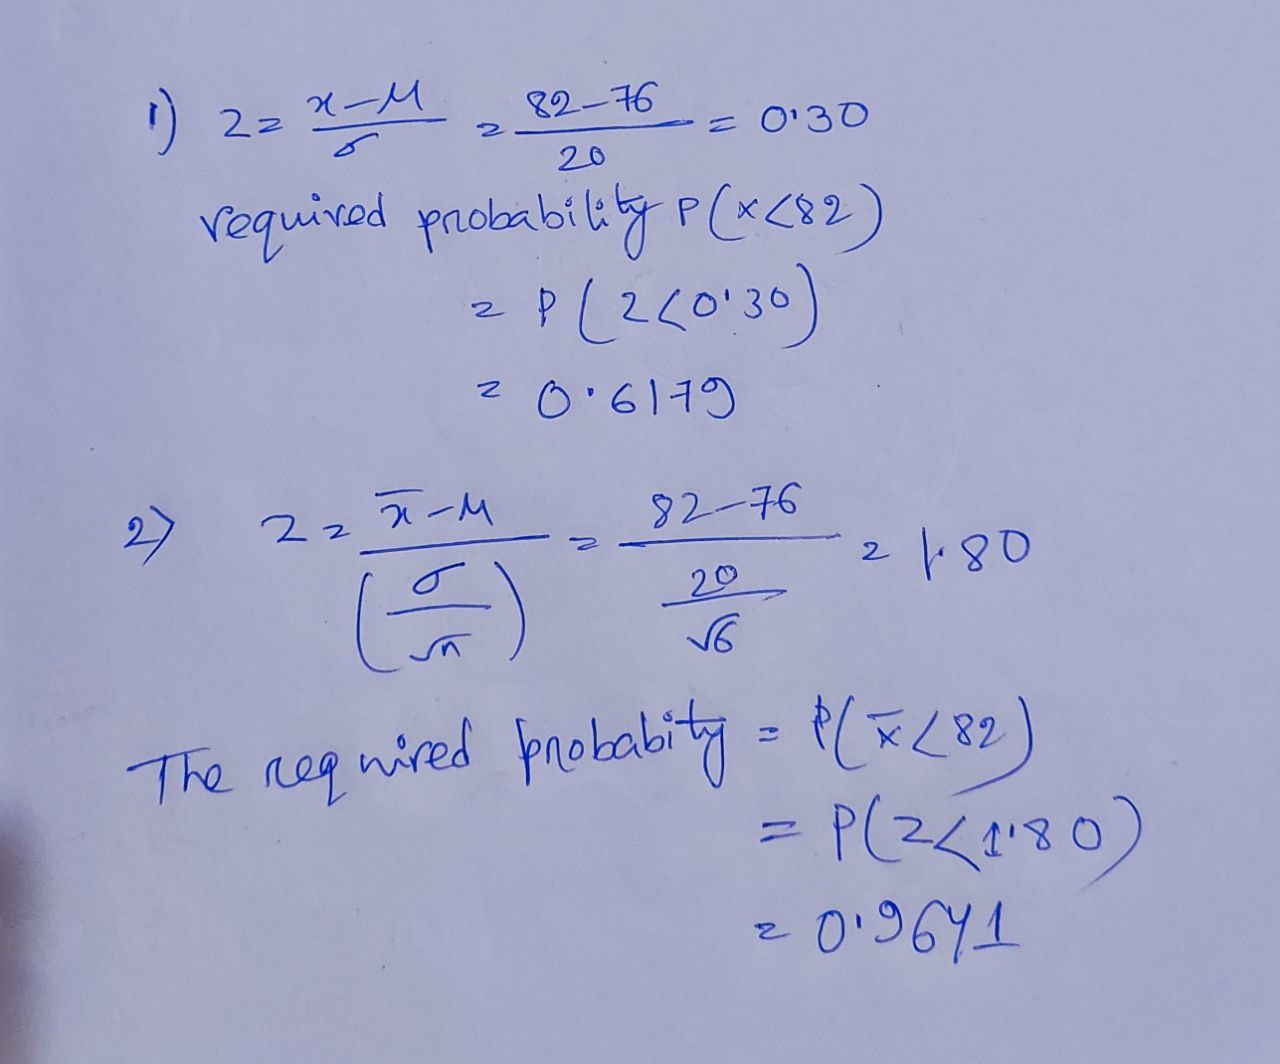 1) z = x-μ / σ = 82-76 / 20 = 0.30
required probability P(x<82)
= P(z<0.30)
= 0.6179
2) z = x̄-μ / (σ/√n) = 82-76 / (20/√6) = 1.80
The required probabity = P(x̄<82)
= P(z<1.80)
= 0.9641